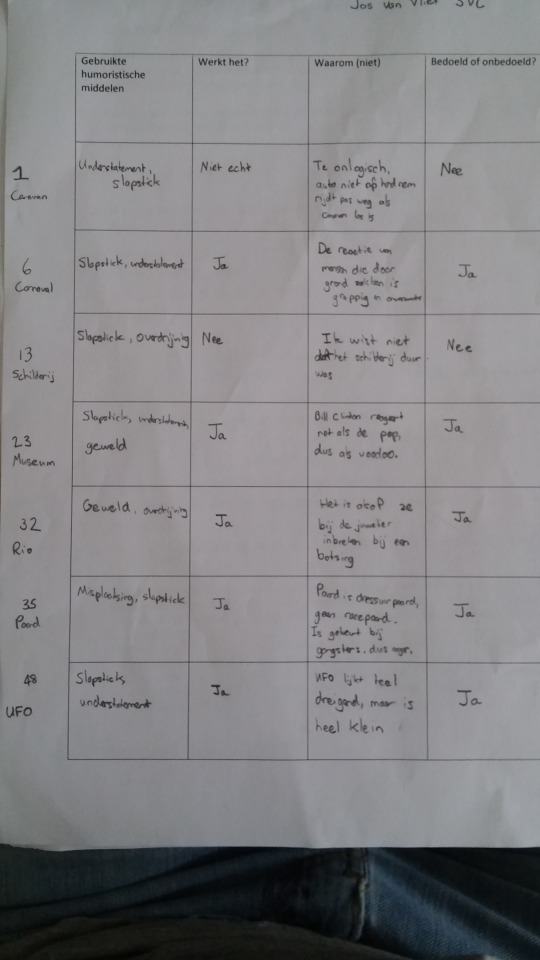 Jos van Vliet 5VC
Gebruikte
humoristische
middelen
Werkt het?
Waarom (niet)
Bedoeld of onbedoeld?
1
Caravan
Understatement,
slapstick
Niet echt
Te onlogisch,
auto niet op handrem
rijdt pas weg als
caravan los is
Nee
6
Carnaval
Slapstick, understatement
Ja
De reactie van
mensen die door
grond zakken is
grappig en
Ja
13
Schilderij
Slapstick, overdrijving
Nee
Ik wist niet
dat het schilderij duur
was
Nee
23
Museum
Slapstick, understatement,
geweld
Ja
Bill Clinton reageert
net als de pop,
dus als voodoo.
Ja
32
Rio
Geweld, overdrijving
Ja
Het is alsof ze
bij de juwelier
inbreken bij een
botsing
Ja
35
Paard
Misplaatsing, slapstick
Ja
Paard is dressuurpaard,
geen racepaard.
Is gebeurt bij
gangsters, dus
Ja
48
UFO
Slapstick,
understatement
Ja
UFO lijkt heel
dreigend, maar is
heel klein
Ja